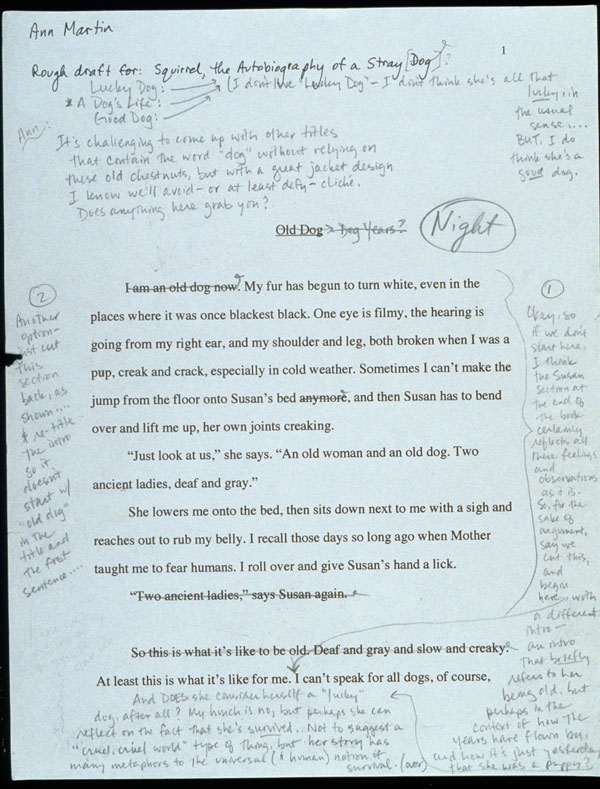 Ann Martin
1
Rough draft for: Squirrel, the Autobiography of a Stray [Dog]:
Lucky Dog:
* A Dog's Life:
Good Dog:
(I don't love "Lucky Dog" – I don't think she's all that
lucky, in
the usual
sense....
BUT, I do
think she's a
good dog.
Ann:
It's challenging to come up with other titles
that contain the word "dog" without relying on
these old chestnuts, but with a great jacket design
I know we'll avoid – or at least defy – cliché.
Does anything here grab you?
Old Dog > Dog Years?
Night
I am an old dog now. My fur has begun to turn white, even in the
places where it was once blackest black. One eye is filmy, the hearing is
going from my right ear, and my shoulder and leg, both broken when I was a
pup, creak and crack, especially in cold weather. Sometimes I can't make the
jump from the floor onto Susan's bed anymore, and then Susan has to bend
over and lift me up, her own joints creaking.
"Just look at us," she says. "An old woman and an old dog. Two
ancient ladies, deaf and gray."
She lowers me onto the bed, then sits down next to me with a sigh and
reaches out to rub my belly. I recall those days so long ago when Mother
taught me to fear humans. I roll over and give Susan's hand a lick.
"Two ancient ladies," says Susan again.
So this is what it's like to be old. Deaf and gray and slow and creaky.
At least this is what it's like for me. I can't speak for all dogs, of course,
2
Another
option –
just cut
this
section
back, as
shown....
& re-title
the intro
so it
doesn't
start w/
"old dog"
in the
title and
the first
sentence....
1
Okay, so
if we don't
start here,
I think
the Susan
section at
the end of
the book
certainly
reflects all
these feelings
and
observations
as it is.
So, for the
sake of
argument,
say we
cut this,
and
begin
here, with
a different
intro –
an intro
that briefly
refers to her
being old, but
perhaps in the
context of how the
years have flown by,
and how it's just yesterday
that she was a puppy?
And DOES she consider herself a "lucky"
dog, after all? My hunch is no, but perhaps she can
reflect on the fact that she's survived. Not to suggest a
"cruel, cruel world" type of thing, but her story has
many metaphors to the universal (& human) notion of
survival. (over)